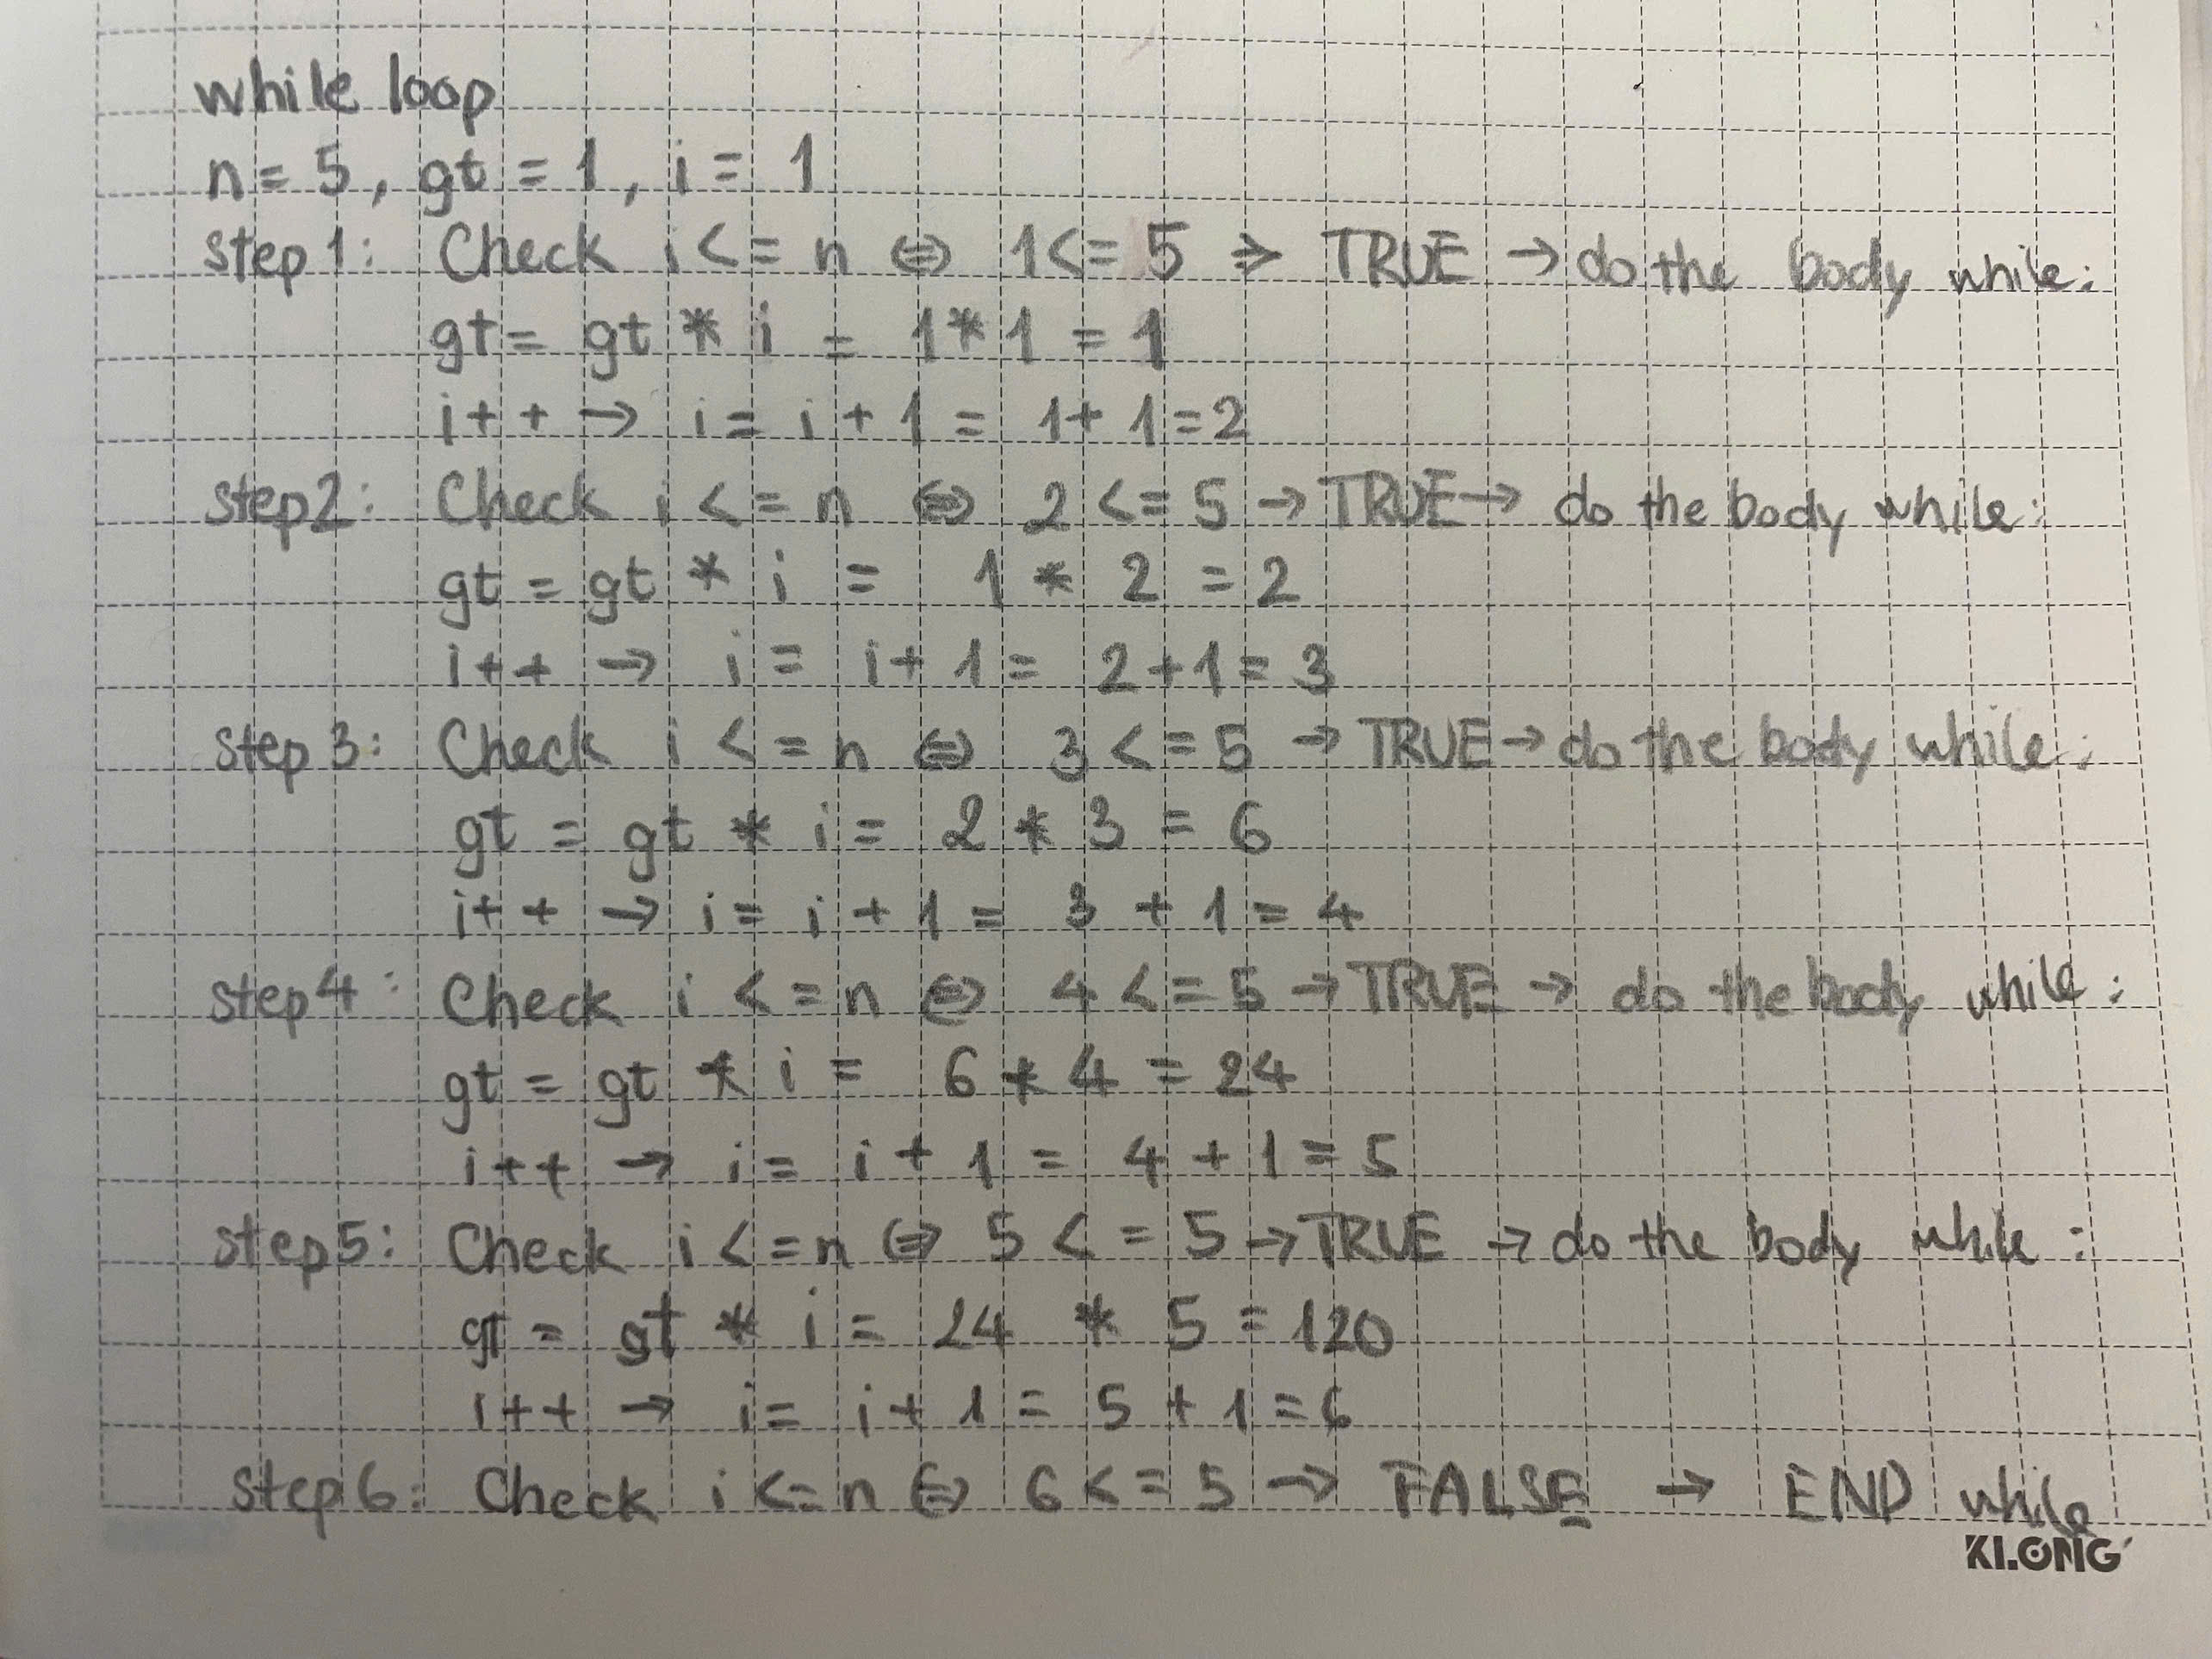 while loop
n = 5, gt = 1, i = 1
step 1: Check i <= n ⇔ 1 <= 5 ⇒ TRUE → do the body while:
gt = gt * i = 1 * 1 = 1
i++ → i = i + 1 = 1 + 1 = 2
step 2: Check i <= n ⇔ 2 <= 5 → TRUE → do the body while:
gt = gt * i = 1 * 2 = 2
i++ → i = i + 1 = 2 + 1 = 3
step 3: Check i <= n ⇔ 3 <= 5 → TRUE → do the body while:
gt = gt * i = 2 * 3 = 6
i++ → i = i + 1 = 3 + 1 = 4
step 4: Check i <= n ⇔ 4 <= 5 → TRUE → do the body while:
gt = gt * i = 6 * 4 = 24
i++ → i = i + 1 = 4 + 1 = 5
step 5: Check i <= n ⇔ 5 <= 5 → TRUE → do the body while:
gt = gt * i = 24 * 5 = 120
i++ → i = i + 1 = 5 + 1 = 6
step 6: Check i <= n ⇔ 6 <= 5 → FALSE → END while
KLONG